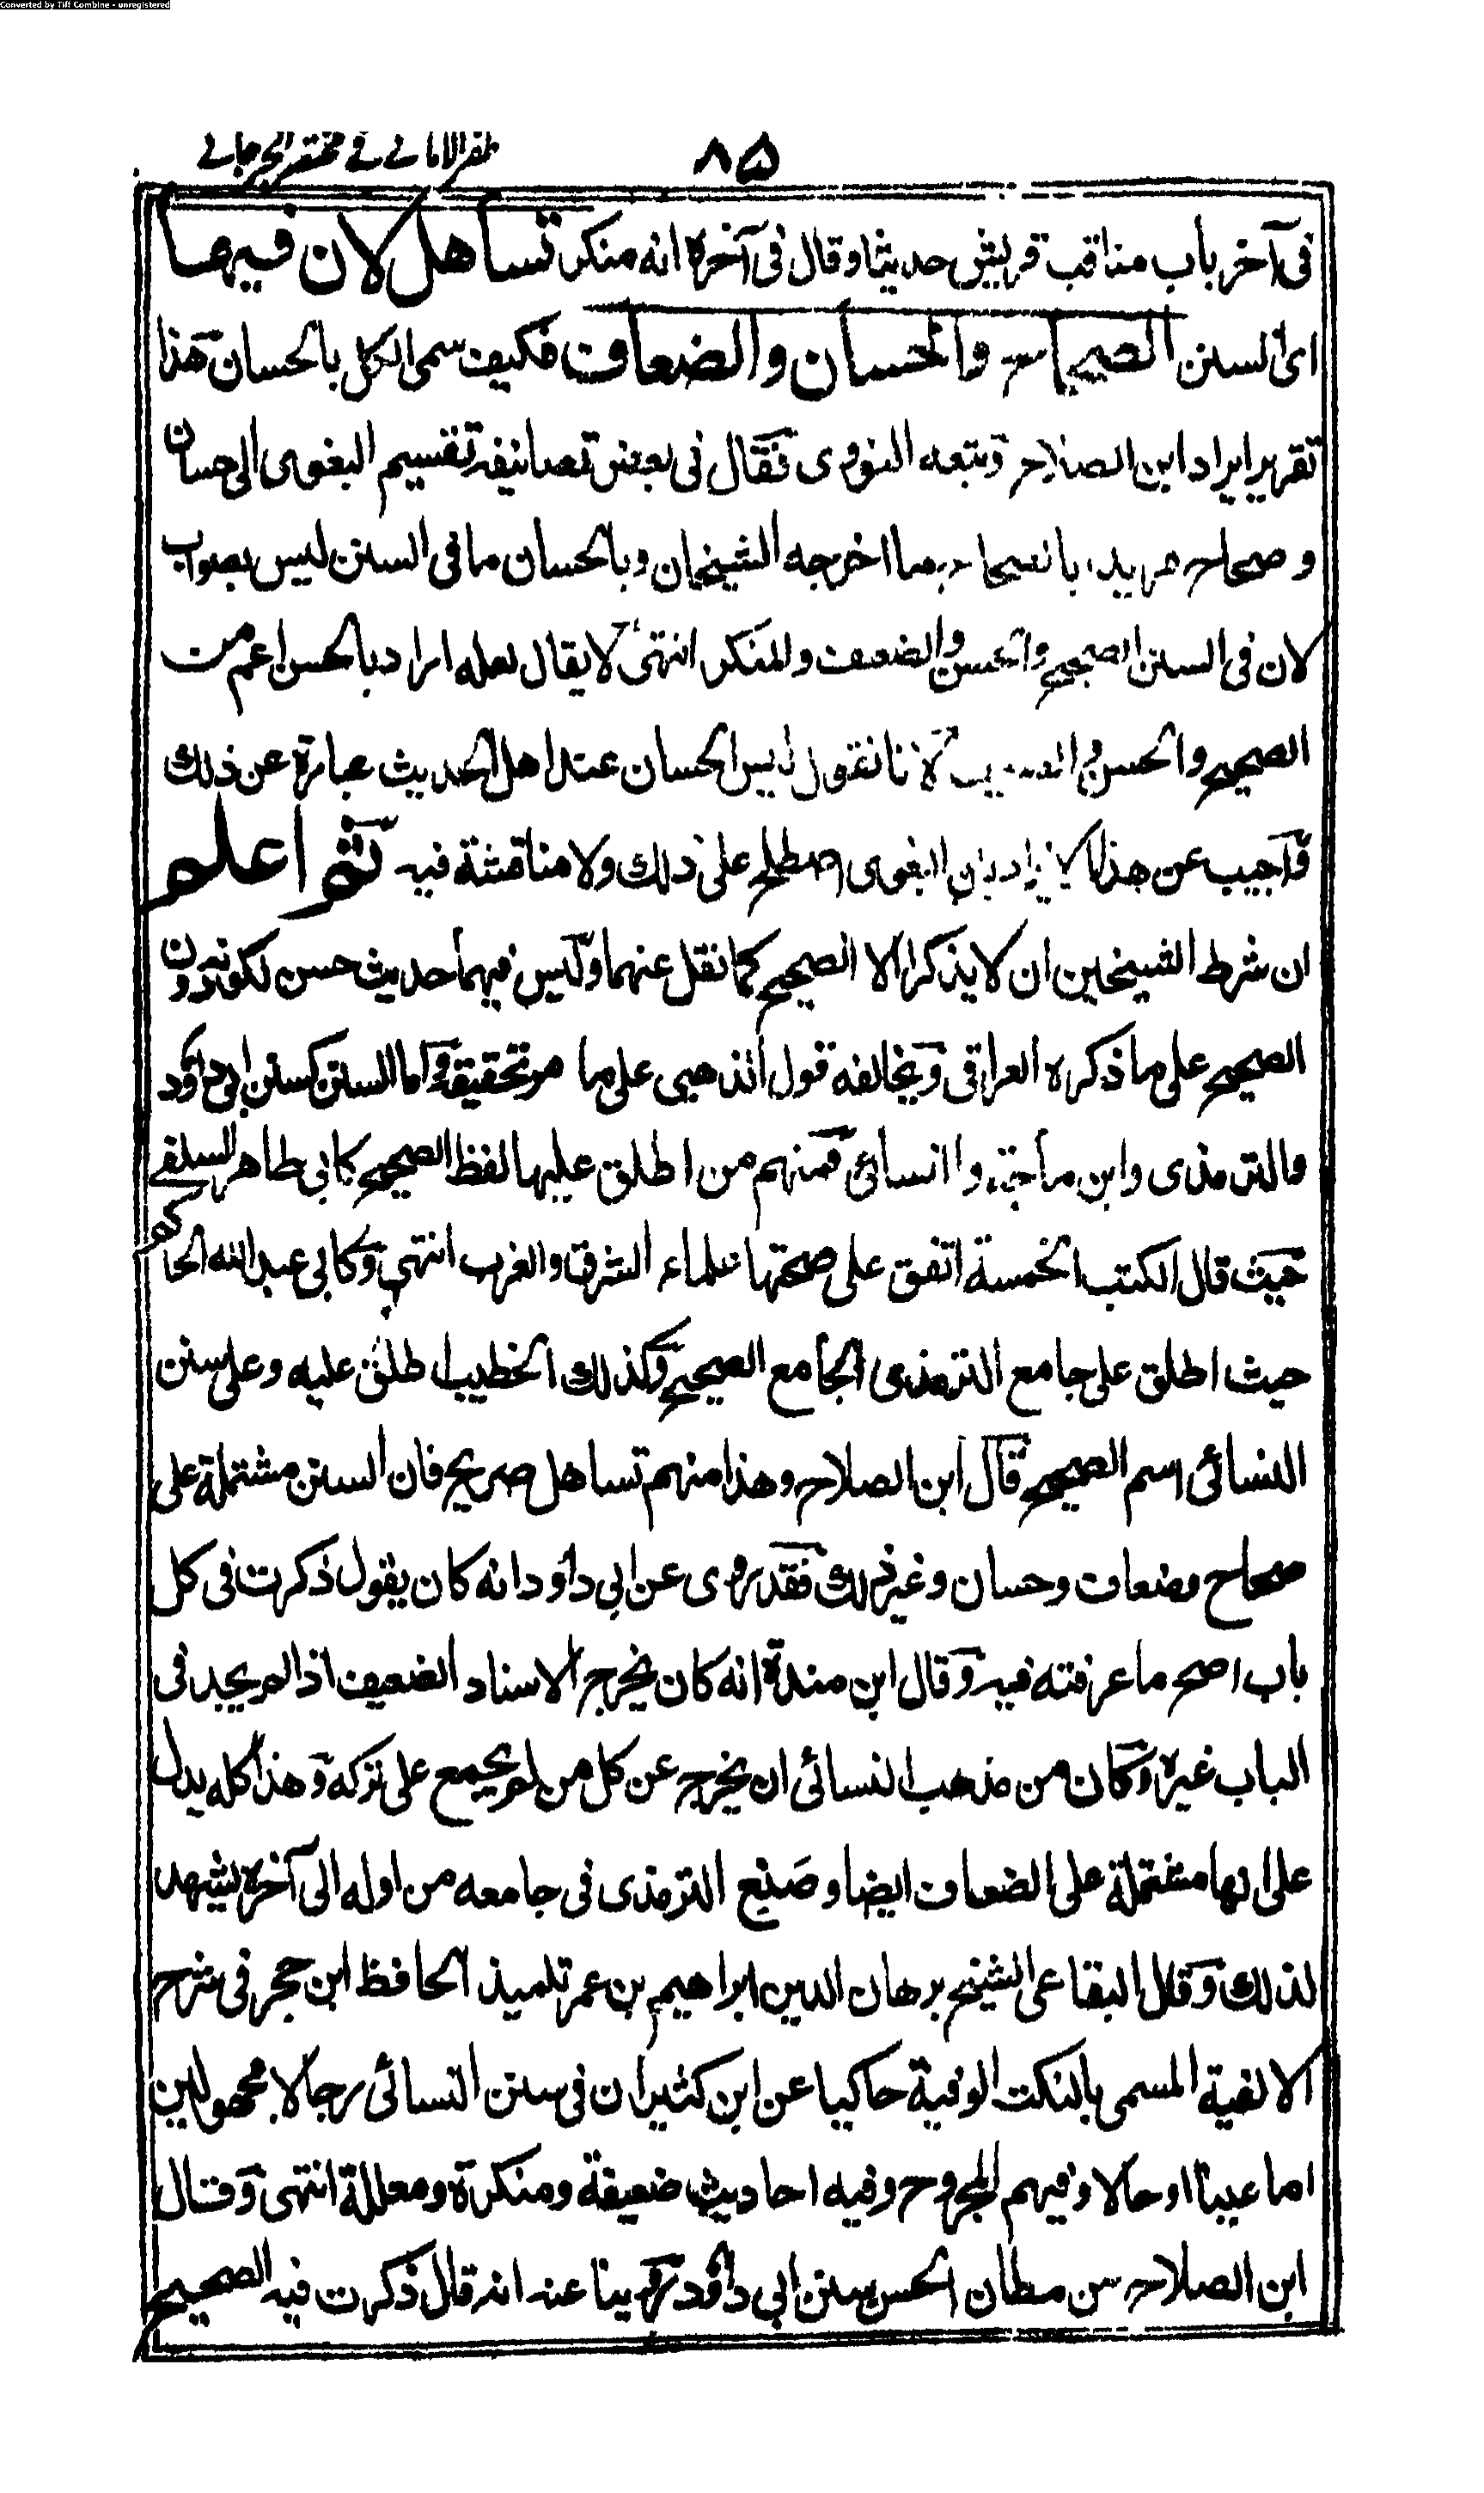 Converted by Tiff Combine - unregistered
ظفر الامانے فے مختصر الجرجانے
٨٥
فی آخر باب مناقب قریش حدیثا وقال فی آخرہ انه منکر تساهل لان فیها
ای السنن الصحاح والحسان والضعاف فکیف سمی الکل بالحسان هذا
تقریر ایراد ابن الصلاح وتبعه النووی فقال فی بعض تصانیفه تقسیم البغوی الی حسان
وصحاح مرید بالصحاح ما اخرجه الشیخان وبالحسان ما فی السنن لیس بصواب
لان فی السنن الصحیح والحسن والضعیف والمنکر انتهی لا یقال لعله اراد بالحسن اعم من
الصحیح والحسن والضعیف لانا نقول لیس الحسان عند اهل الحدیث عبارة عن ذلك
واجیب عن هذا الایراد بان البغوی اصطلح علی ذلك ولا مناقشة فیه ثم اعلم
ان شرط الشیخین ان لا یذکرا الا الصحیح کما نقل عنهما ولیس فیهما حدیث حسن لکونه دون
الصحیح علی ما ذکره العراقی ویخالفه قول الذهبی علی ما مر تحقیقه واما السنن کسنن ابی داؤد
والترمذی وابن ماجة والنسائی فمنهم من اطلق علیها لفظ الصحیح کابی طاهر السلفے
حیث قال الکتب الخمسة اتفق علی صحتها علماء الشرق والغرب انتهی وکابی عبد الله الحاکم
حیث اطلق علی جامع الترمذی الجامع الصحیح وکذلك الخطیب اطلق علیه وعلی سنن
النسائی اسم الصحیح قال ابن الصلاح وهذا منهم تساهل صریح فان السنن مشتملة علی
صحاح وضعاف وحسان وغیر ذلك فقد روی عن ابی داؤد انه کان یقول ذکرت فی کل
باب اصح ما عرفته فیه وقال ابن مندة انه کان یخرج الاسناد الضعیف اذا لم یجد فی
الباب غیره وکان من مذهب النسائی ان یخرج عن کل من لم یجمع علی ترکه وهذا کله یدل
علی انها مشتملة علی الضعاف ایضا وصنع الترمذی فی جامعه من اوله الی آخره یشهد
لذلك وقال البقاعی الشیخ برهان الدین ابراهیم بن عمر تلمیذ الحافظ ابن حجر فی شرح
الالفیة المسمی بالنکت الوفیة حاکیا عن ابن کثیر ان فی سنن النسائی رجالا مجهولین
اما عینا او حالا وفیهم المجروح وفیه احادیث ضعیفة ومنکرة ومعللة انتهی وقال
ابن الصلاح من مظان الحسن سنن ابی داؤد روینا عنه انه قال ذکرت فیه الصحیح